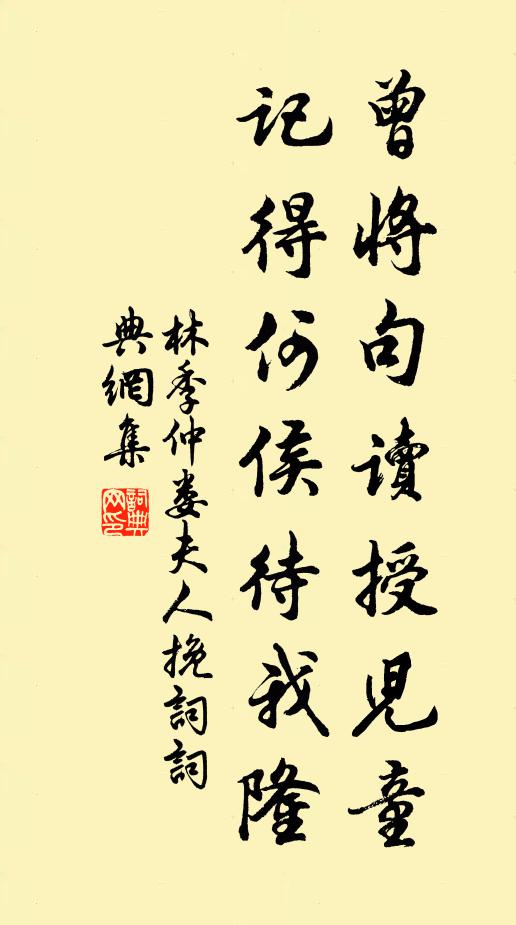 曾將句讀授兒童
記得何侯待我隆
林季仲婁夫人挽詞詞
典網集
詞典網印